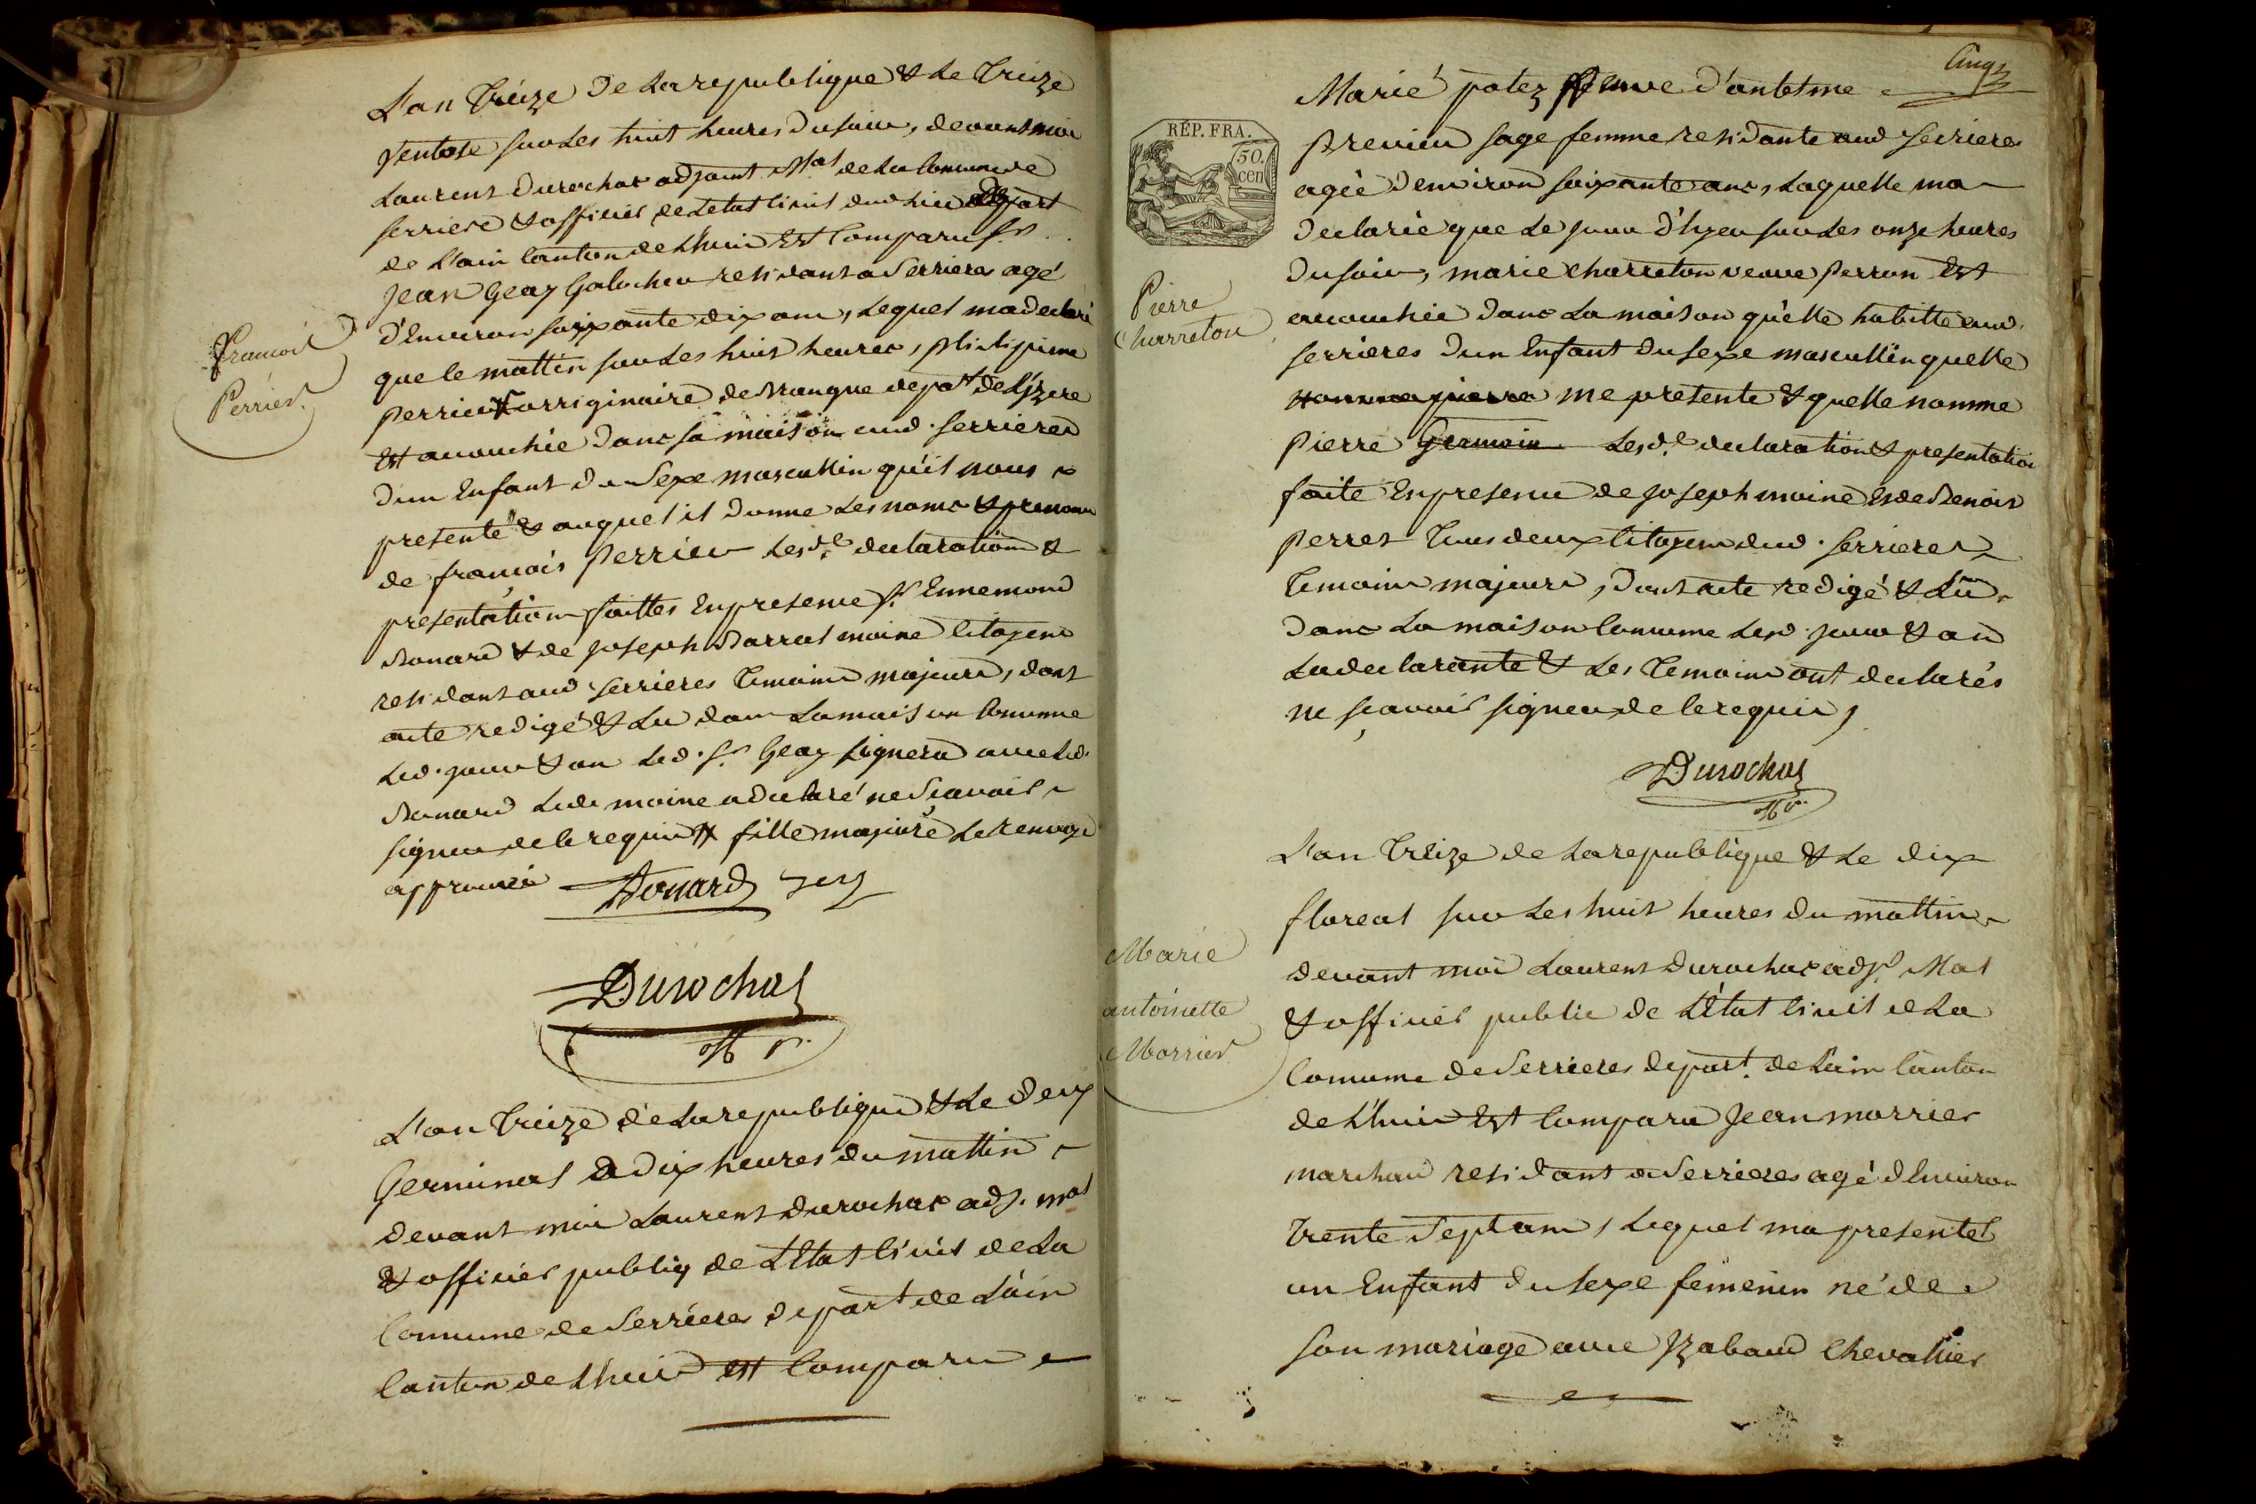 L'an treize de la republique & le treize
ventose sur les huit heures du soir, devant moi
Laurent Durochat adjoint M.al de la Commune de
Serriere & officier de letat civil dud. lieu depart
de l'ain Canton de Lhuis Est Comparu s.r
Jean Geay Galucher residant a Serrieres agé
d'Environ soixante dix ans, Lequel ma declaré
que le mattin sur les huit heures,
Perrier orriginaire de depat. de Lizere
Est acouchée dans sa maison aud. Serrieres
d'un Enfant du Sexe mascullin qu'il nous
presenté & auquel il donne les noms & prenoms
de françois Perrier Lesd.e declaration &
presentation faittes En presence s.r Ennemond
Bonard & de Joseph Barrat moine Citoyens
residant aud Serrieres temoins majeurs, dont
acte redigé & Lu dans la maison Comune
Led. jour & an Led. s.r Geay signera avec led.
Bonard Led. moine a declaré ne Sçavoir
signer de ce requis # fille majeure Le renvoye
approuvé Bonard Jey
Durochat
françois
Perrier
L'an treize de la republique & le deux
Germinal a dix heures du mattin
devant moi Laurent Durochat adj. m.al
& officier publiq de LEtat Civil de la
Comune de Serrieres depart de L'ain
Canton de Lhuis est Comparu
Cinq
Marie potez veuve d'antelme
Previeu sage femme residante aud Serrieres
agée d'environ soixante ans, Laquelle ma
declarée que le jour d'hyer sur les onze heures
du soir, marie Charreton veuve Perron Est
acouchée dans La maison qu'elle habitte aud.
Serrieres d'un Enfant du sexe mascullin quelle
nomme pierre me presente & quelle nomme
Pierre Germain Lesd.e declaration & presentation
faite En presence de Joseph moine & de Benoit
Perret tous deux Citoyens dud. Serrieres
temoins majeurs, dont acte redigé & Lu
dans La maison Comune Led. jour & an
La declarante & Les temoins ont declarés
ne sçavoir signer de ce requis,
Durochat
RÉP. FRA.
50.
cen
Pierre
Charreton
L'an treize de la republique & le dix
floreal sur les huit heures du mattin
devant moi Laurent Durochat adj.t Mal
& officier public de L'état Civil de La
Comune de Serrieres depart. de Lain Canton
de Lhuis Est Comparu Jean morrier
marchand residant a Serrieres agé d'Environ
trente Sept ans, Lequel ma presenté
un Enfant du Sexe femenin né de
son mariage avec Izabaud Chevallier
Marie
antoinette
Morrier